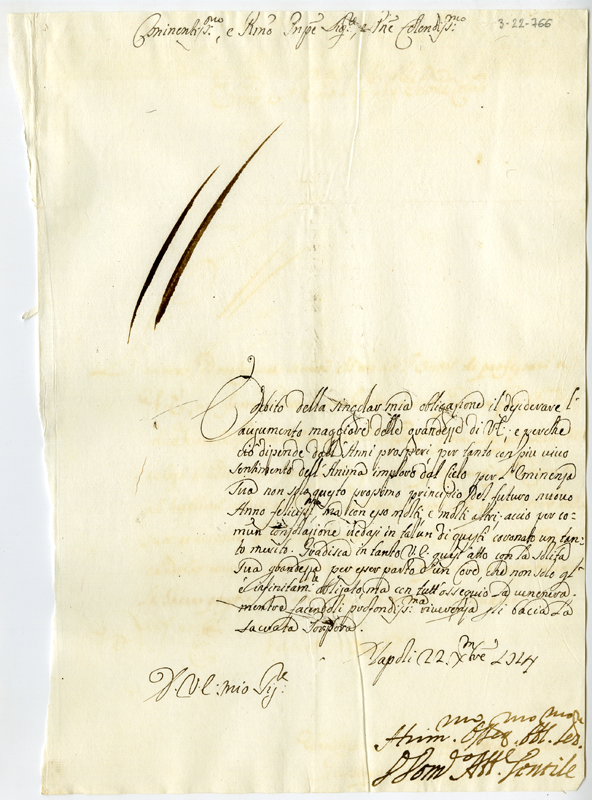 Eminentiss.mo, e Rmo Pnpe Sig.re e Pne Colendiss.mo
3-22-766
Debito della singolar mia obligazione il desiderare l'
aucumento maggiore delle grandezze di V.E.: e perche
ciò dipende dagl'Anni prosperi per tanto con più vivo
sentimento dell'Anima imploro dal Cielo per l'Eminenza
Sua non solo questo prossimo principio del futuro nuovo
Anno feliciss.mo ma con esso molti, e molti altri, acciò per co-
mun consolazione vedasi in talun di questi coronato un tan-
to merito. Gradisca in tanto V.E. quest'atto con la solita
Sua grandezza per esser parto d'un Core, che non solo gl'
è infinitam.te obligato, ma con tutt'ossequio La
mentre facendoli profondiss.ma riverenza gli bacia La
Sacrata Porpora.
Napoli 22. Xmbre 1714
D.V.E: mio Sig.re
Hum.mo Obl.
Dom.